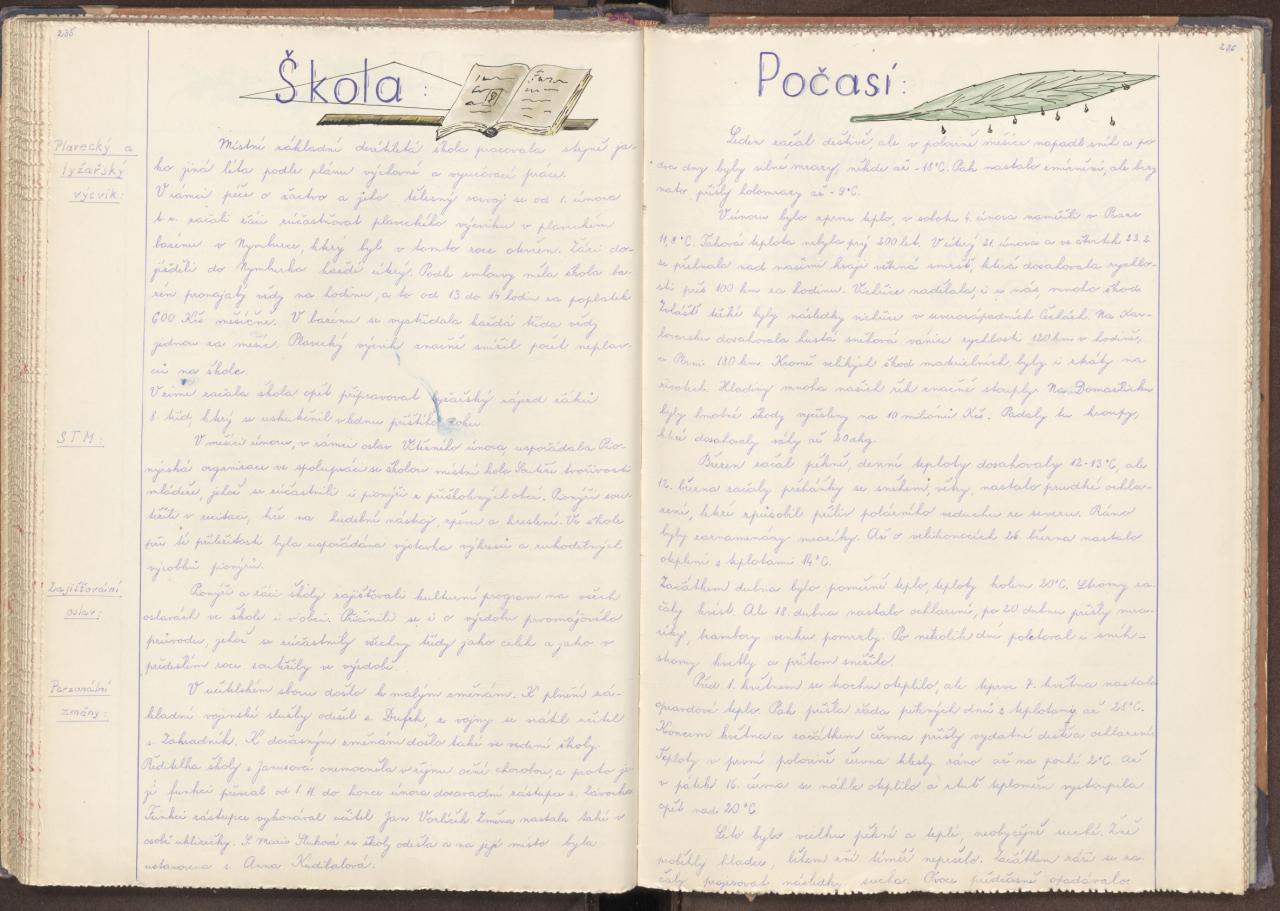 235
Škola :
Plavecký a
lyžařský
výcvik:
Místní základní devítiletá škola pracovala stejně ja-
ko jiná léta podle plánu výchovné a vyučovací práce.
V rámci péče o žactvo a jeho tělesný rozvoj se od 1. února
t.r. začali žáci zúčastňovat plaveckého výcviku v plaveckém
bazénu v Nymburce, který byl v tomto roce otevřen. Žáci do-
jížděli do Nymburka každé úterý. Podle smlouvy měla škola ba-
zén pronajatý vždy na hodinu, a to od 13 do 14 hodin za poplatek
600 Kčs měsíčně. V bazénu se vystřídala každá třída vždy
jednou za měsíc. Plavecký výcvik značně snížil počet neplav-
ců na škole.
V zimě začala škola opět připravovat lyžařský zájezd žáků
8 tříd, který se uskutečnil v lednu příštího roku.
STM:
V měsíci únoru, v rámci oslav Vítězného února, uspořádala Pio-
nýrská organizace ve spolupráci se školou místní kolo Soutěže tvořivosti
mládeže, jehož se zúčastnili i pionýři z přiškolených obcí. Pionýři sou-
těžili v recitaci, hře na hudební nástroj, zpěvu a kreslení. Ve škole
při té příležitosti byla uspořádána výstavka výkresů a rukodělných
výrobků pionýrů.
Zajišťování
oslav:
Pionýři a žáci školy zajišťovali kulturní program na všech
oslavách ve škole i v obci. Přičinili se i o výzdobu prvomájového
průvodu, jehož se zúčastnily všechny třídy jako celek a jako v
předešlém roce soutěžily ve výzdobě.
Personální
změny:
V učitelském sboru došlo k malým změnám. K plnění zá-
kladní vojenské služby odešel s. Dufek, z vojny se vrátil učitel
s. Zahradník. K dočasným změnám došlo také ve vedení školy.
Ředitelka školy s. Janusová onemocněla v říjnu oční chorobou, a proto je-
jí funkci převzal od 1. 11. do konce února dosavadní zástupce s. Závorka
Funkci zástupce vykonával učitel Jan Vorlíček. Změna nastala také v
osobě uklízečky. S. Marie Fluková ze školy odešla a na její místo byla
ustanovena s. Anna Kudláčková.
236
Počasí :
Leden začal deštivě, ale v polovině měsíce napadl sníh a po
dva dny byly silné mrazy, někde až -18°C. Pak nastalo zmírnění, ale brzy
nato přišly holomrazy až -9°C.
V únoru bylo zprvu teplo, v sobotu 4. února naměřili v Praze
11,8°C. Taková teplota nebyla prý 200 let. V úterý 21. února a ve čtvrtek 23.2.
se přehnala nad našimi kraji větrná smršť, která dosahovala rychlo-
sti přes 100 km za hodinu. Vichřice nadělala, i u nás, mnoho škod
Zvláště těžké byly následky vichřice v severozápadních Čechách. Na Kar-
lovarsku dosahovala hustá sněhová vánice rychlosti 120 km v hodině,
v Plzni 180 km. Kromě velikých škod materielních byly i ztráty na
životech. Hladiny mnoha našich řek značně stouply. Na Domažlicku
byly hmotné škody vyčísleny na 10 miliónů Kčs. Padaly tu kroupy,
které dosahovaly váhy až 20 dkg.
Březen začal pěkně, denní teploty dosahovaly 12-13°C, ale
12. března začaly přeháňky se sněžením, větry, nastalo prudké ochla-
zení, které způsobil příliv polárního vzduchu ze severu. Ráno
byly zaznamenány mrazíky. Až o velikonocích 26. března nastalo
oteplení s teplotami 14°C.
Začátkem dubna bylo poměrně teplo, teploty kolem 20°C. Stromy za-
čaly kvést. Ale 18. dubna nastalo ochlazení, po 20. dubnu přišly mra-
zíky, brambory venku pomrzly. Po několik dní poletoval i sníh -
stromy kvetly a přitom sněžilo.
Před 1. květnem se trochu oteplilo, ale teprve 7. května nastalo
opravdové teplo. Pak přišla řada pěkných dnů s teplotami až 28°C.
Koncem května a začátkem června přišly vydatné deště a ochlazení
Teploty v první polovině června klesly ráno až na pouhé 2°C. Až
v pátek 16. června se náhle oteplilo a rtuť teploměru vystoupila
opět nad 20°C.
Léto bylo vcelku pěkné a teplé, neobyčejně suché. Žně
proběhly hladce, během žní téměř nepršelo. Začátkem září se za-
čaly projevovat následky sucha. Ovoce předčasně opadávalo.